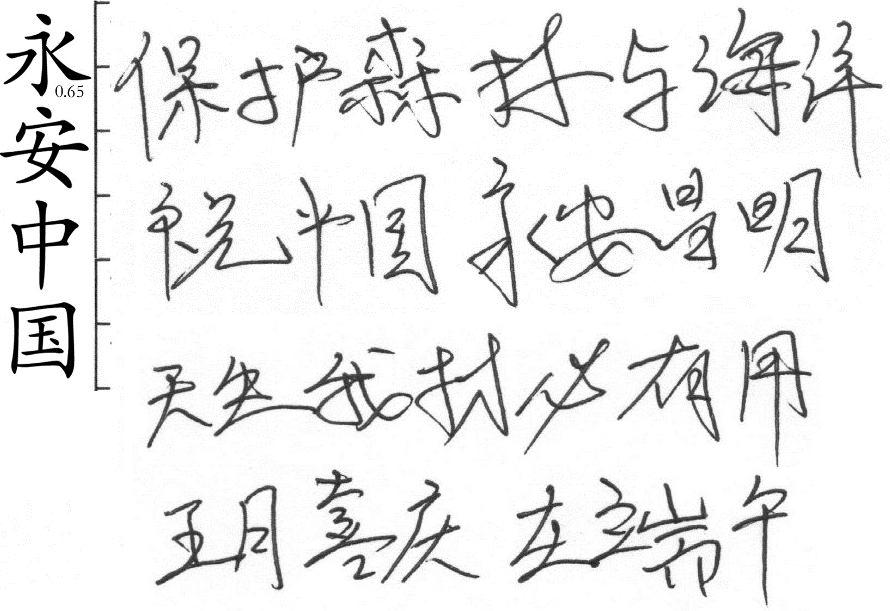 永安中国
0.65
保护森林与海洋
祝中国永安昌明
天生我材必有用
五月喜庆在端午